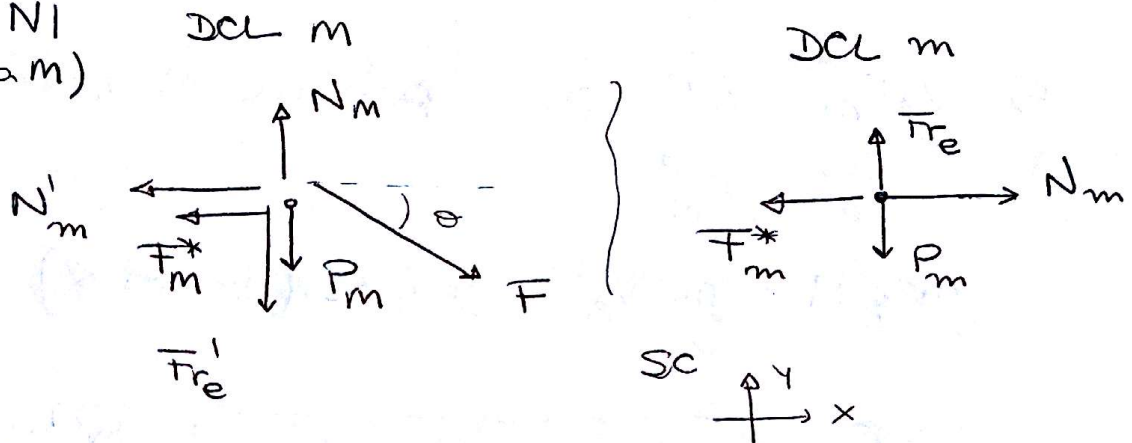 NI
a m)
DCL m
N_m
N'_m
F*_m
P_m
θ
F
Fr_e'
DCL m
Fr_e
N_m
F*_m
P_m
SC
Y
X